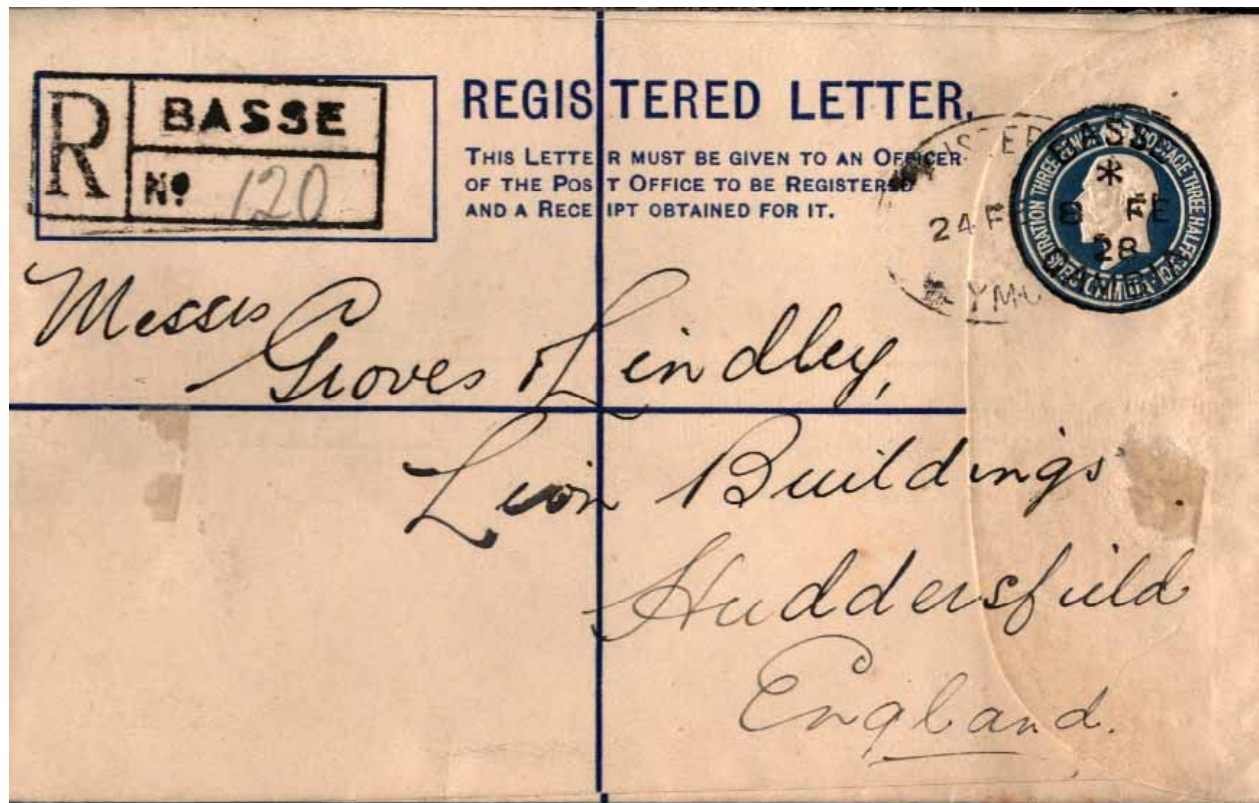 R BASSE
No 120
REGISTERED LETTER.
THIS LETTER MUST BE GIVEN TO AN OFFICER
OF THE POST OFFICE TO BE REGISTERED
AND A RECEIPT OBTAINED FOR IT.
24 F
YMOU
BASSE
*
8 FE
28
GAMBIA
REGISTRATION THREE PENCE POSTAGE THREE HALFPENCE
Messrs
Groves & Lindley,
Lion Buildings
Huddersfield
England.